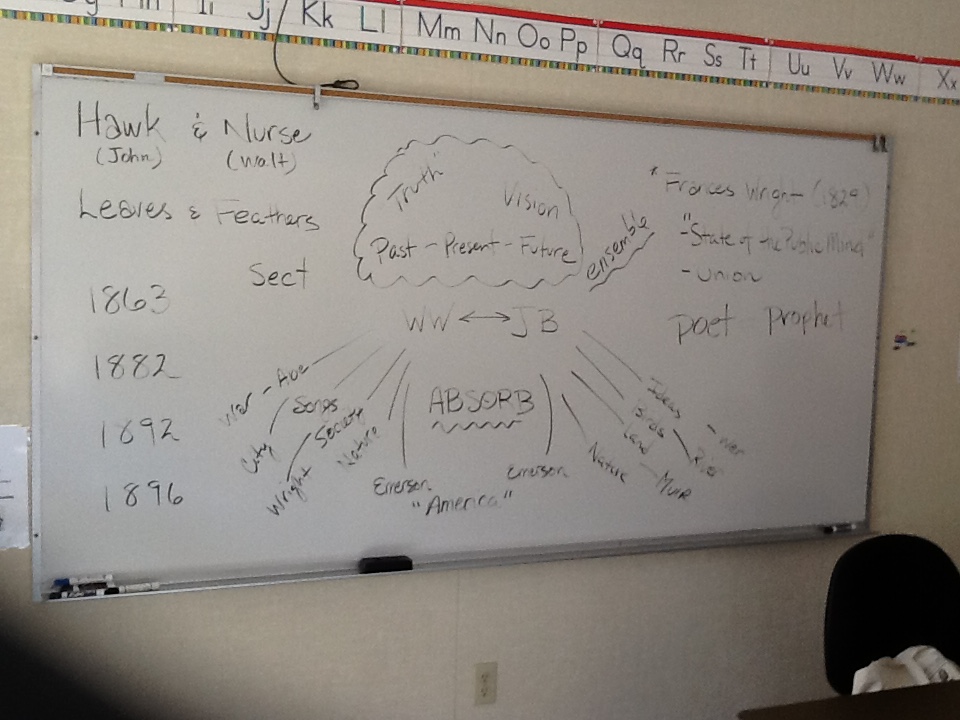 Ii Jj Kk Ll Mm Nn Oo Pp Qq Rr Ss Tt Uu Vv Ww Xx
Hawk & Nurse
(John) (Walt)
Leaves & Feathers
Sect
1863
1882
1892
1896
"Truth"
Vision
Past - Present - Future
ensemble
WW ↔ JB
ABSORB
War - Ave
City
Songs
Wright
Society
Nature
Emerson
"America"
Emerson
Nature
Land - Muir
Birds - River
Ideas - War
* Frances Wright (1829)
- "State of the Public Mind"
- Union
poet prophet